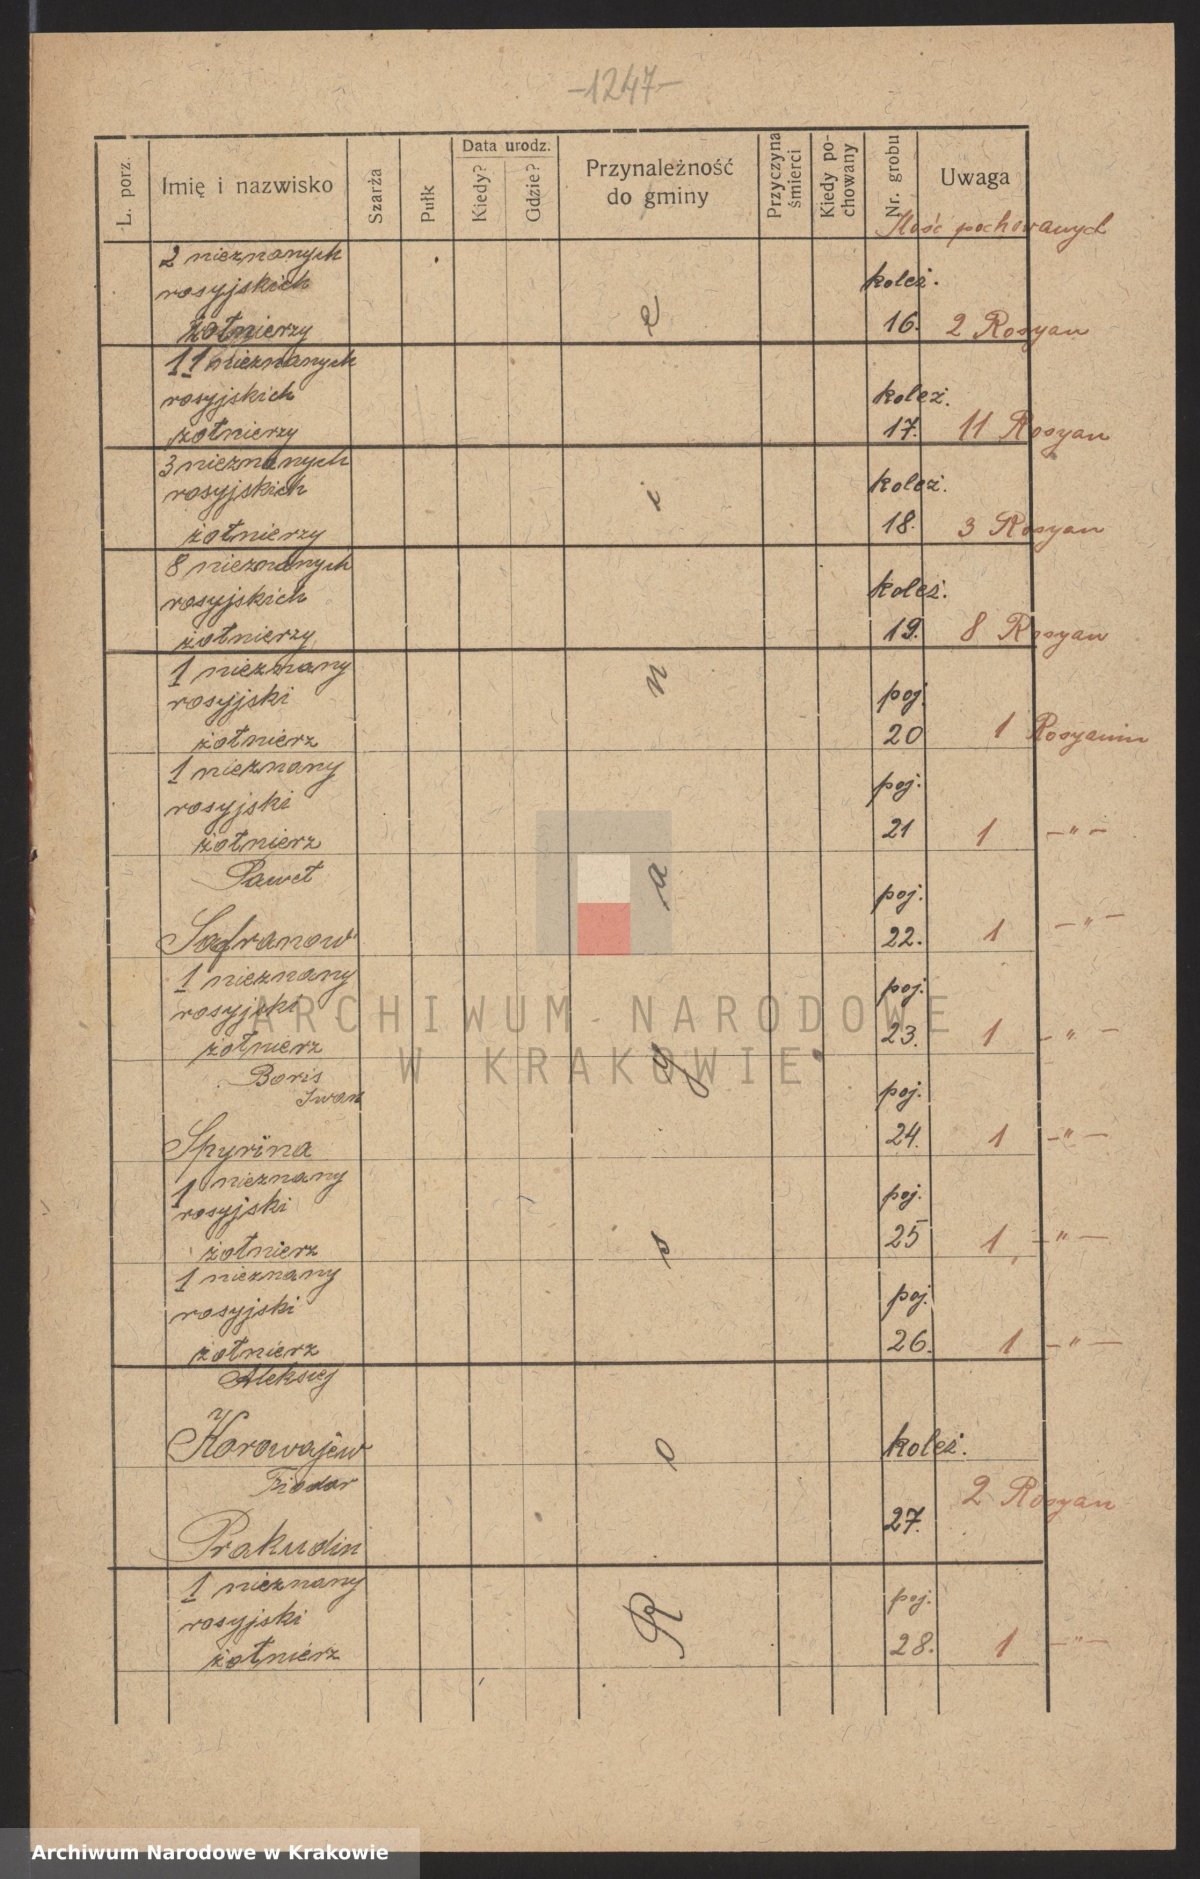 -1247-
L. porz.
Imię i nazwisko
Szarża
Pułk
Data urodz.
Kiedy?
Gdzie?
Przynależność
do gminy
Przyczyna
śmierci
Kiedy po-
chowany
Nr. grobu
Uwaga
Ilość pochowanych
2 nieznanych
rosyjskich
żołnierzy
koleż.
16. 2 Rosyan
11 nieznanych
rosyjskich
żołnierzy
koleż.
17. 11 Rosyan
3 nieznanych
rosyjskich
żołnierzy
koleż.
18. 3 Rosyan
8 nieznanych
rosyjskich
żołnierzy
koleż.
19. 8 Rosyan
1 nieznany
rosyjski
żołnierz
poj.
20 1 Rosyanin
1 nieznany
rosyjski
żołnierz
poj.
21 1 -"-
Paweł
Safranow
poj.
22. 1 -"-
1 nieznany
rosyjski
żołnierz
poj.
23. 1 -"-
Boris
Iwan
Spyrina
poj.
24. 1 -"-
1 nieznany
rosyjski
żołnierz
poj.
25 1 -"-
1 nieznany
rosyjski
żołnierz
poj.
26. 1 -"-
Aleksiej
Korowajew
Fiodor
Prakudin
koleż.
27. 2 Rosyan
1 nieznany
rosyjski
żołnierz
poj.
28. 1 -"-
Rosyanie
ARCHIWUM NARODOWE
W KRAKOWIE
Archiwum Narodowe w Krakowie